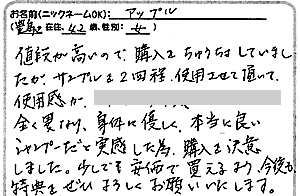 お名前(ニックネームOK): アップル
(愛知 在住、42 歳、性別: 女 )
値段が高いので、購入をちゅうちょしていまし
たが、サンプルを2回程、使用させて頂いて、
使用感が、
全く異なり、身体に優しく、本当に良い
シャンプーだと実感した為、購入を決意
しました。少しでも安価で買えるよう、今後も
特典をぜひよろしくお願いいたします。